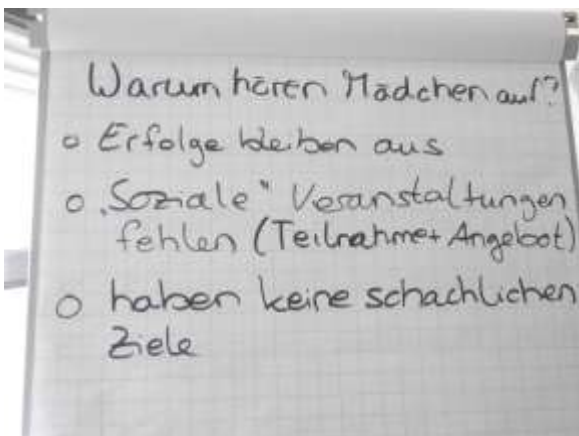 Warum hören Mädchen auf?
o Erfolge bleiben aus
o "Soziale" Veranstaltungen
fehlen (Teilnahme + Angebot)
o haben keine schachlichen
Ziele